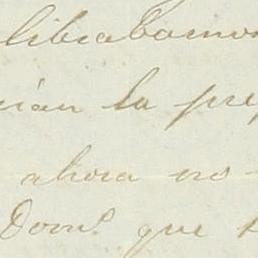 librabamos
cian la pre
ahora no
Dom.º que